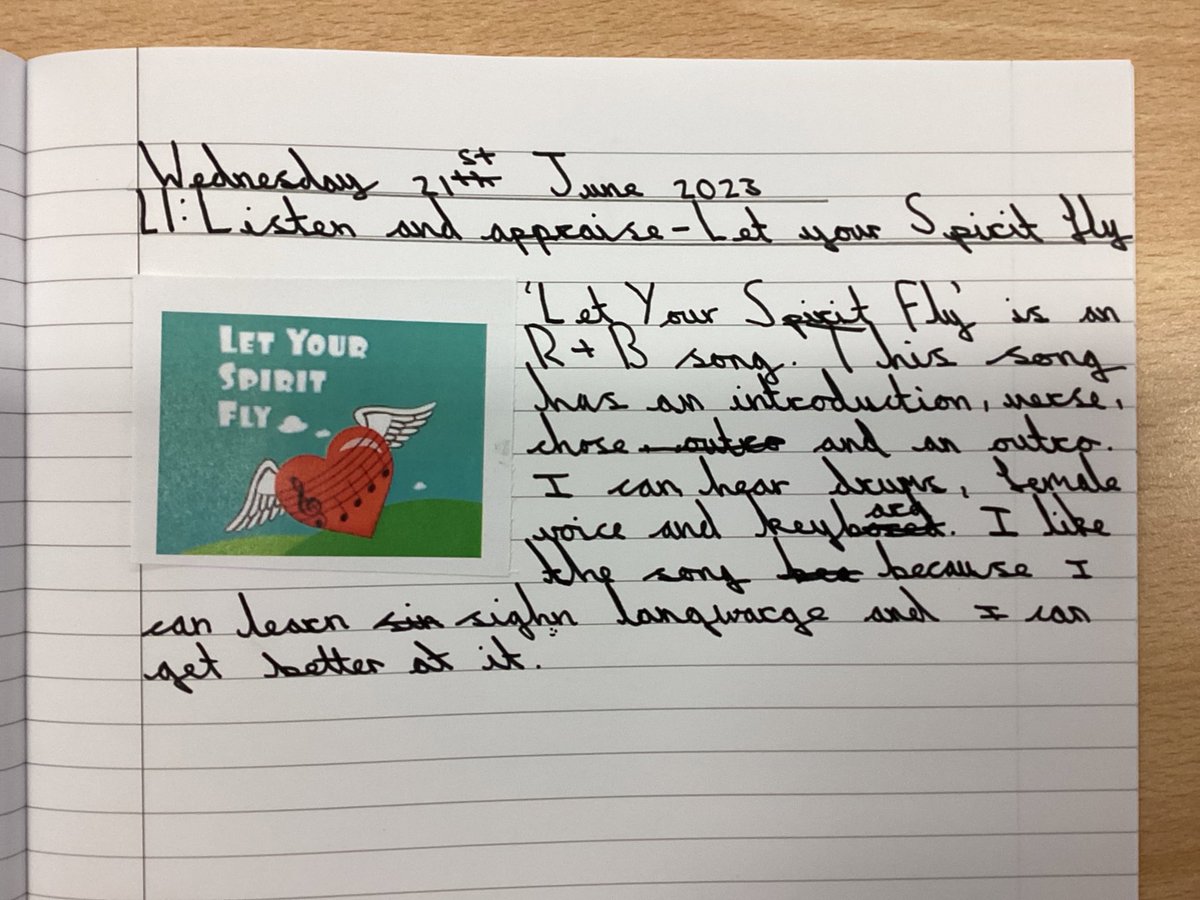 Wednesday 21st June 2023
LI: Listen and appraise - Let your Spirit fly
LET YOUR
SPIRIT
FLY
'Let Your Spirit Fly' is an
R + B song. This song
has an introduction, verse,
chose outro and an outro.
I can hear drums, female
voice and keyboard. I like
the song bec because I
can learn sin sighn langwarge and I can
get better at it.